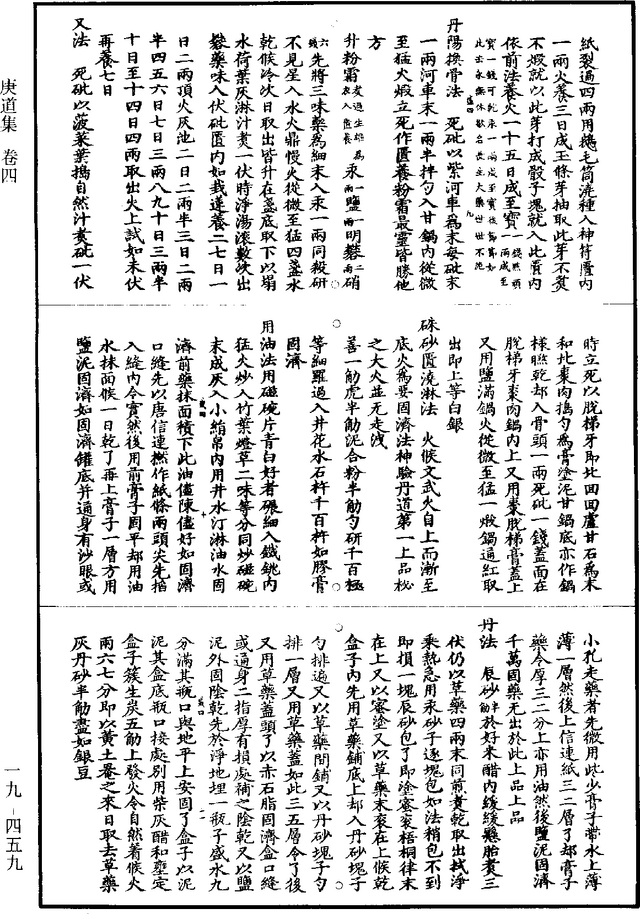 庚道集 卷四
紙裂過四兩用捴毛筒澆種入神符匱內
一兩火養三日成玉條芽抽取此芽不煑
不煅就以此芽打成骰子塊就入此匱內
依前法養火一十五日成至寶
丹陽換骨法 死砒以紫河車爲末每砒末
一兩河車末一兩半拌勻入甘鍋內從微
至猛火煅立死作匱養粉霜最靈皆勝他
方
升粉霜 汞一兩鹽一兩明礬二兩硝
六錢先將三味藥爲細末入汞一兩同殺研
不見星入水火鼎慢火從微至猛四盞水
乾候冷次日取出皆升在盞底取下以塌
水荷葉灰淋汁煑一伏時淨湯滾數次出
礬藥味入伏砒匱內如栽蓮養二七日一
日二兩頂火灰池二日二兩半三日二兩
半四五六日七日三兩八九十日三兩半
十日至十四日四兩取出火上試如未伏
再養七日
又法 死砒以菠菜葉搗自然汁煑砒一伏
時立死以脫梯牙即北田回盧甘石爲末
和北棗肉搗勻爲膏塗泥甘鍋底亦作鍋
樣㬠乾却入骨頭一兩死砒一錢蓋面在
脫梯牙棗肉鍋內上又用棗脫梯膏蓋上
又用鹽滿鍋火從微至猛一煅鍋通紅取
出即上等白銀
硃砂匱澆淋法 火候文武火自上而漸至
底火爲要固濟法神驗丹道第一上品秘
之大火並无走洩
善一觔虎半觔泥合粉半觔勻研千百極
等細羅過入井花水石杵千百杵如膠膏
固濟
用油法用磁碗片青白好者碾細入鐵銚內
猛火炒入竹葉燈草二味等分同炒磁碗
末成灰入小絹帛內用井水汀淋油水固
濟前藥抹面積下此油儘陳儘好如固濟
口縫先以唐信連撚作紙條兩頭尖先掐
入縫內令實然後用前膏子固平却用油
水抹面候一日乾了再上膏子一層方用
鹽泥固濟如固濟罐底并通身有沙眼或
小孔走藥者先微用此少膏子帶水上薄
薄一層然後上信連紙三二層了却膏子
藥令厚三二分上亦用油然後鹽泥固濟
千萬固藥无出於此上品上品
丹法 辰砂半觔於好米醋內緩緩懸胎煑三
伏仍以草藥四兩末同前煑乾取出拭淨
乘熱急用汞砂子逐塊包如法稍包不到
即損一塊辰砂包了即塗蜜衮梧桐律末
在上又以蜜塗又以草藥末衮在上候乾
盒子內先用草藥鋪底上却入丹砂塊子
勻排遍又以草藥間鋪又以丹砂塊子勻
排一層又用草藥蓋如此三五層令了後
又用草藥蓋頭了以赤石脂固濟盒口縫
或通身二指厚有損處補之陰乾又以鹽
泥外固陰乾先於淨地埋一瓶子盛水九
分滿其瓶口與地平上安固了盒子以泥
泥其盒底瓶口接處別用柴灰醋和壅定
盒子簇生炭五觔上發火令自然着候火
兩六七分即以黄土罨之來日取去草藥
灰丹砂半觔盡如銀豆
一九-四五九